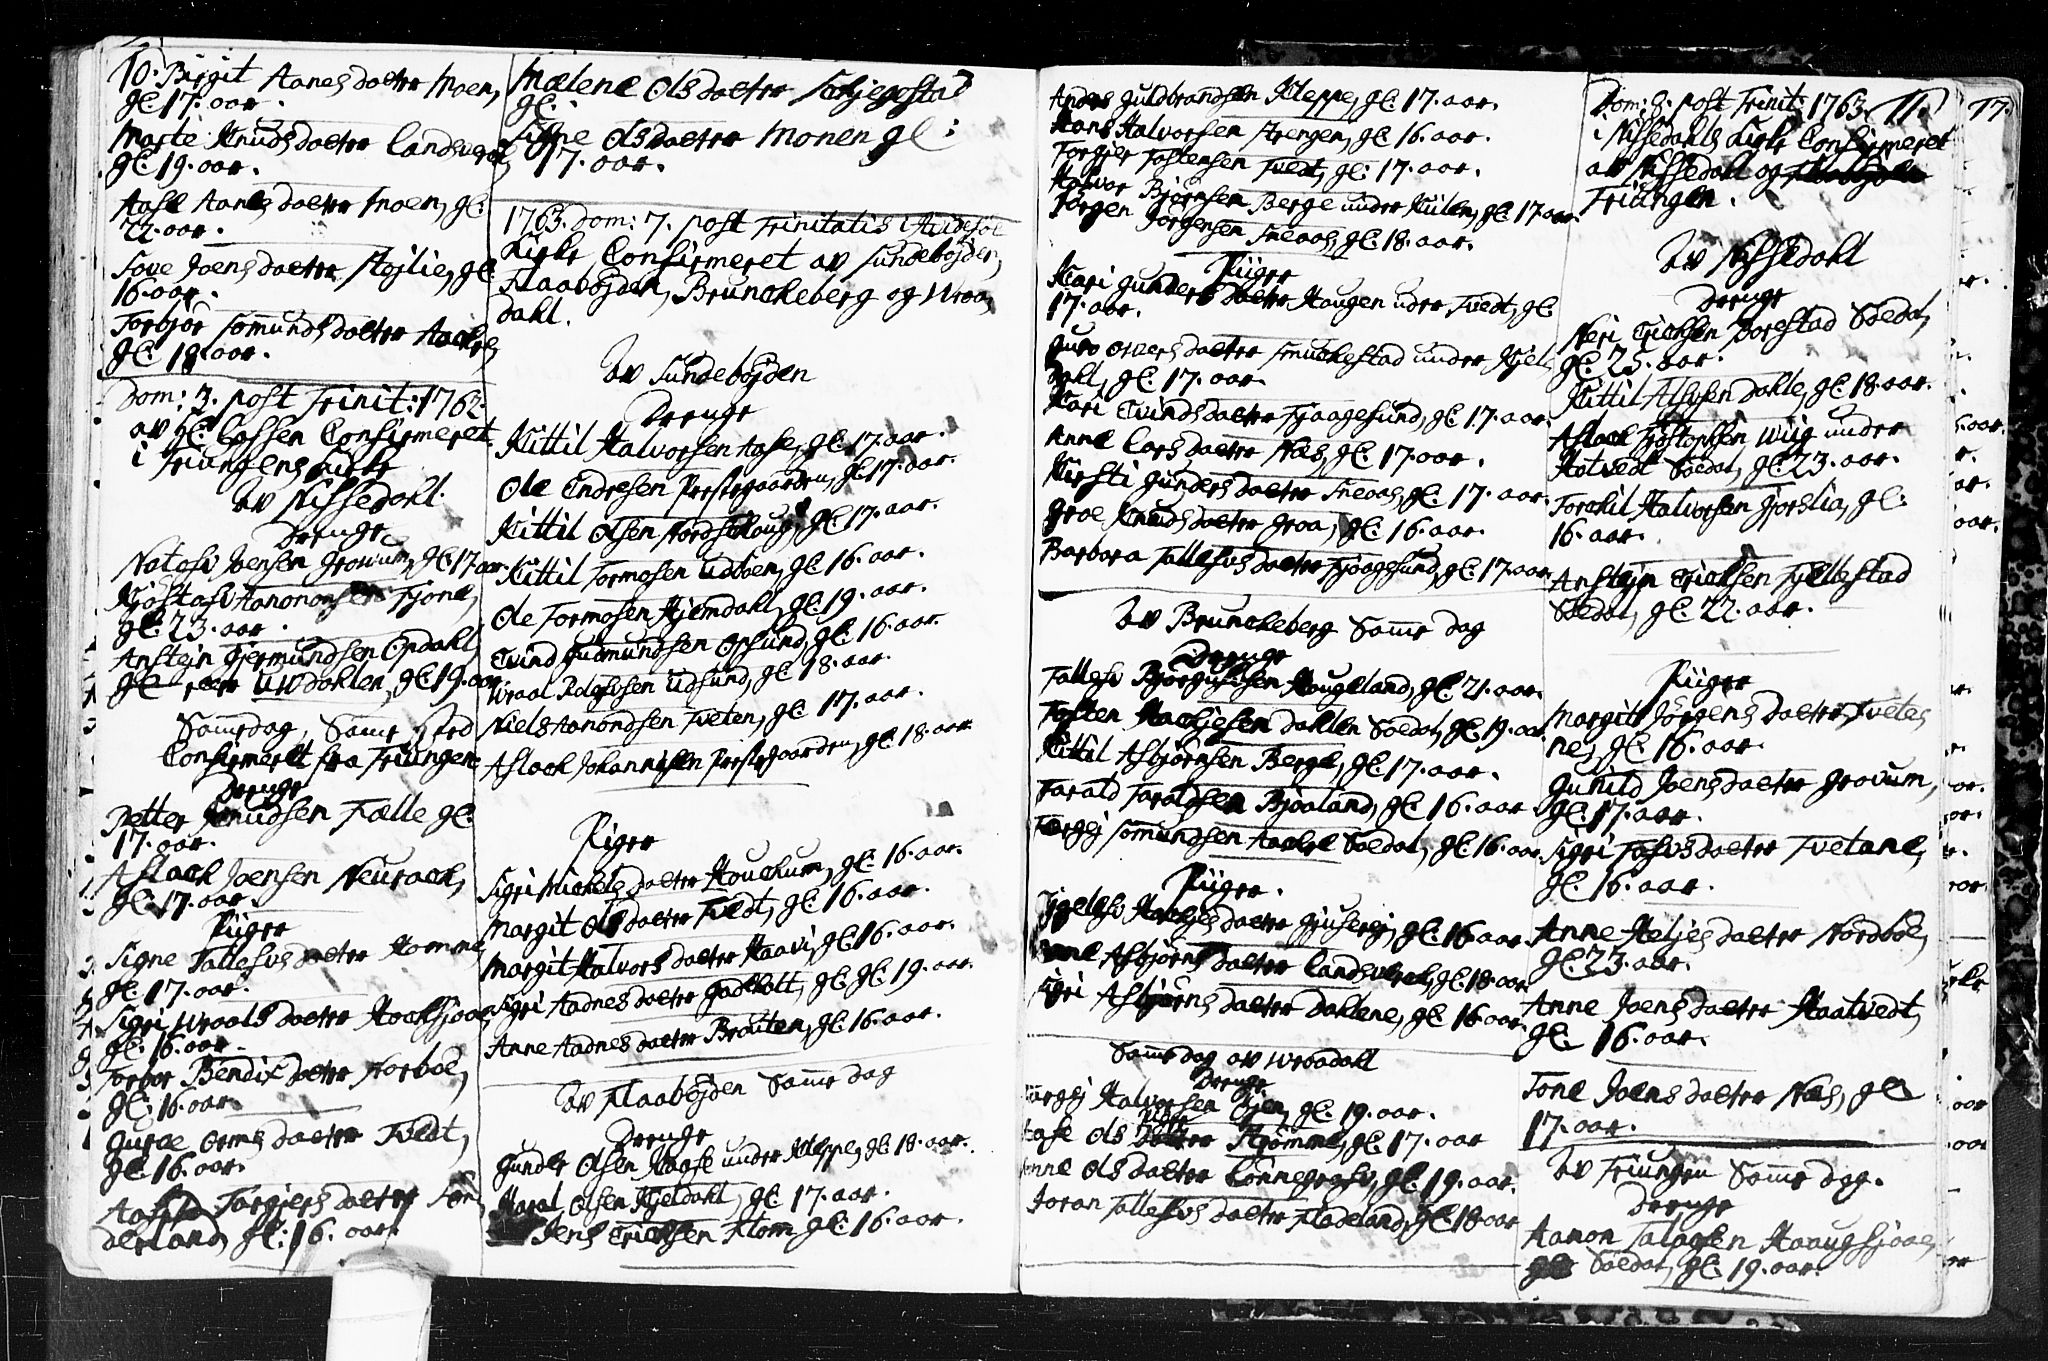 10. Birgit Aanesdaatter Moen,
gl: 17. aar.
Marte Knudsdaatter Landsverch
gl: 19. aar.
Aase Aanesdaatter Moen, gl:
22. aar.
Tove Joensdaatter Støjlie, gl:
16. aar.
Torbjør Somundsdaatter Aachre,
gl: 18. aar.
Dom: 3. post Trinit: 1763.
av H: Lassen Confirmeret
i Triungens Kirke
Av Nissedahl.
Drenge
Joensen Growum, gl: 17. aar.
Kjøstolv Aanononsen Fjone,
gl: 23. aar.
Anstejn Gjermundsen Opdahl,
gl: Uvdahlen, gl: 19. aar
Samedag, Same Sted
Confirmeret fra Triungen
Drenge
Petter Knudsen Fælle gl:
17. aar.
Aslach Joensen Neurach,
gl: 17. aar.
Piiger
Signe Tallefvsdaatter Homme,
gl: 17. aar.
Sigri Wraalsdaatter
gl: 16. aar.
Torbør Bendixdaatter Norbøe,
gl: 16. aar
Guroe Ormsdaatter Tvedt,
gl: 16. aar.
Torgiersdaatter Søn
derland, gl: 16. aar.
Mælene Olsdaatter
gl:
Signe Olsdaatter Monen gl:
17. aar.
1763. Dom: 7. post Trinitatis i Hvidesøe
Kirke Confirmeret av Sundebøjden,
Flaabøjden, Brunckeberg og Wraa
dahl.
Av Sundebøjden
Drenge
Kittil Halvorsen Aase, gl: 17. aar.
Ole Endresen Prestegaarden, gl: 17. aar.
Kittil Olsen Nordschoug, gl: 17. aar.
Kittil Tormosen Udbøen, gl: 16. aar.
Ole Tormosen Hjemdahl, gl: 19. aar.
Evind Gudmundsen Opsund, gl: 16. aar.
Wraal Rolefvsen Udsund, gl: 18. aar.
Niels Aanondsen Tveten, gl: 17. aar.
Aslach Johannisen Prestegaarden, gl: 18. aar
Piger
Sigri Michelsdaatter Houchum, gl: 16. aar.
Margit Olsdaatter Tvedt, gl: 16. aar.
Margit Halvorsdaatter Haavi, gl: 16. aar.
Sigri Aadnesdaatter Gadholt, gl: gl: 19. aar.
Anne Aadnesdaatter Brauten, gl: 16. aar.
Av Flaabøjden Same dag
Drenge
Gunder Olsen Haase under Kleppe, gl: 18. aar.
Haral Olsen Kjeldahl, gl: 17. aar.
Jens Erichsen Flom gl: 16. aar.
Anders Guldbrandsen Kleppe, gl: 17. aar.
Hans Halvorsen Strengen, gl: 16. aar.
Torgjer Tostensen Tvedt, gl: 17. aar.
Halvor Bjørnsen Berge under Kiilen, gl: 17. aar
Jørgen Jørgensen Sneaas, gl: 18. aar.
Piiger
Kari Gundersdaatter Haugen under Tvedt, gl:
17. aar.
Guro Olversdaatter Smuchestad under Kjel
dahl, gl: 17. aar.
Kari Evindsdaatter Fjaagesund, gl: 17. aar.
Anne Larsdaatter Næs, gl: 17. aar.
Kirsti Gundersdaatter Sneaas, gl: 17. aar.
Groe Knudsdaatter Groa, gl: 16. aar.
Barbara Tallefvsdaatter Fjaagesund, gl: 17. aar
Av Brunckeberg Same dag
Drenge
Tallefv Bjørgulfsen Hougeland, gl: 21. aar.
Tosten Dahlen Soldat, gl: 19. aar
Kittil Asbjørnsen Berge, gl: 17. aar.
Tarald Taraldsen Bjaaland, gl: 16. aar
Torgej Somundsen Aachre Soldat, gl: 16. aar
Piiger.
gl: 16 aar
Anne Asbjørnsdaatter Landsverch, gl: 18. aar
Sigri Asbjørnsdaatter Dahlene, gl: 16. aar.
Same dag av Wraadahl
Drenge
Torgej Halvorsen Øjen, gl: 19. aar.
Piiger
Aase Olsdaatter Strømme, gl: 17. aar
Anne Olsdaatter Lønnegrav, gl: 19. aar.
Joran Tallefvsdaatter Fladeland, gl: 18. aar
Dom: 8. post Trinit: 1763 11.
i Nissedahls Kirke Confirmeret
av Nissedahl og
Triungen.
Av Nissedahl
Drenge
Neri Erichsen Borestad Soldat,
gl: 25. aar.
Kittil Alfvsen Dahle, gl: 18. aar.
Aslach Wiig under
Hotvedt Soldat, gl: 23. aar.
Torchil Halvorsen Gjorslia, gl:
16. aar.
Anstejn Erichsen Fjellestad
Soldat, gl: 22. aar.
Piiger
Margit Jørgensdaatter Tvete
ne, gl: 16. aar.
Gunild Joensdaatter Growum,
gl: 17. aar.
Sigri Tofvsdaatter Tvetane,
gl: 16. aar.
Anne Heljesdaatter Nordbøe,
gl: 23. aar.
Anne Joensdaatter Haatvedt,
gl: 16. aar.
Tone Joensdaatter Næs, gl:
17. aar.
Av Triungen Same dag.
Drenge
Aanon Talagsen
Soldat, gl: 19. aar.
17.